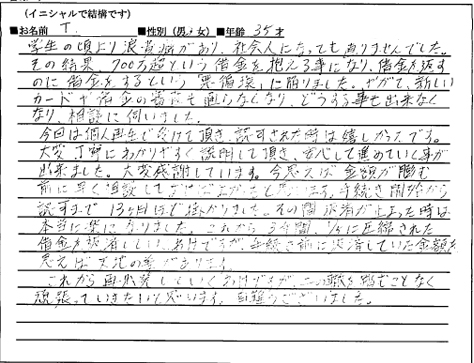 (イニシャルで結構です)
■お名前 T. ■性別(男・女)■年齢 35才
学生の頃より浪費癖があり、社会人になっても直りませんでした。
その結果、700万超という借金を抱える事になり、借金を返す
のに借金をするという「悪循環」に陥りました。やがて、新しい
カードや借金の審査も通らなくなり、どうする事も出来なく
なり、相談に伺いました。
今回は個人再生で受けて頂き、認可された時は嬉しかったです。
大変丁寧にわかりやすく説明して頂き、安心して進めていく事が
出来ました。大変感謝しています。今思えば金額が膨む
前に早く相談して 思います。手続き開始から
認可まで13ヶ月ほど掛かりました。その間返済が止まった時は
本当に楽になりました。これから3年間、1/5に圧縮された
借金を返済していくわけですが、手続き前に返済していた金額を
思えば天地の差があります。
これから再出発していくわけですが、二の轍を踏むことなく
頑張っていきたいと思います。有難うございました。